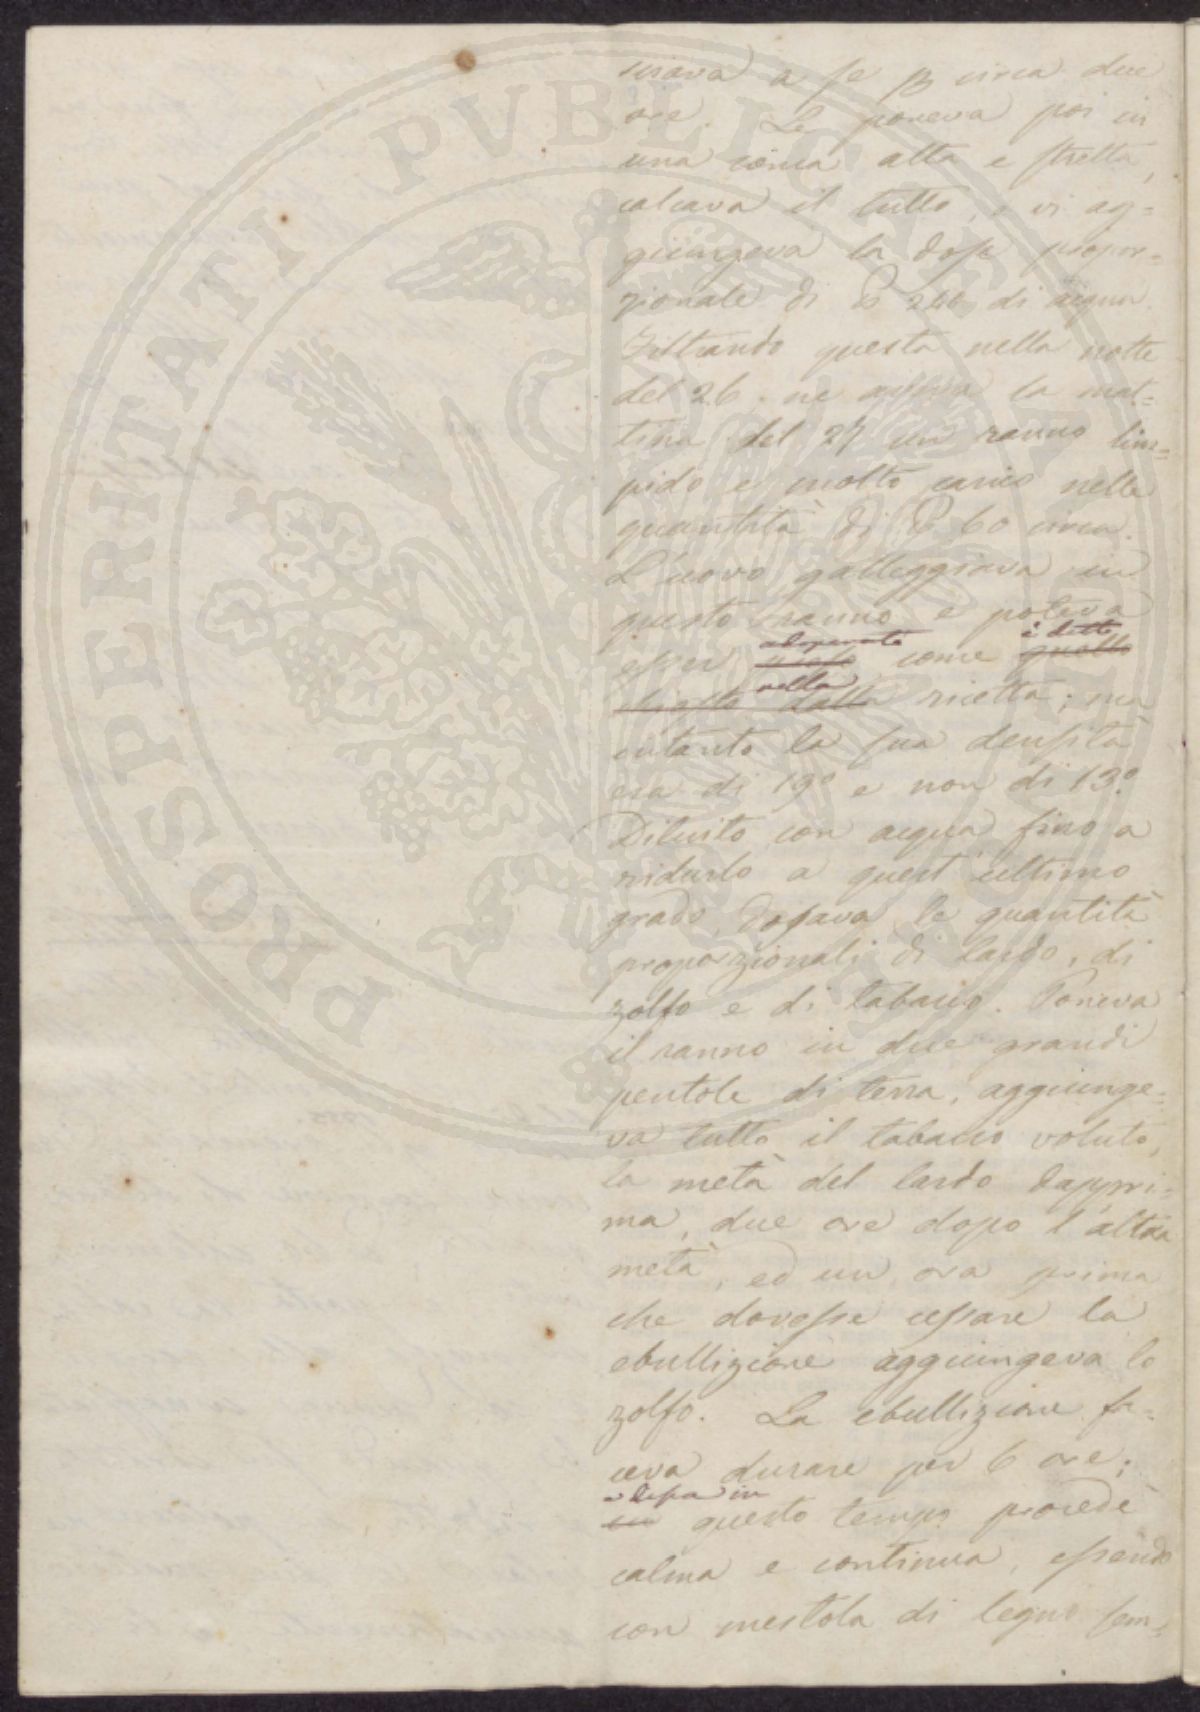 sciava a se per circa due
ore. Le poneva poi in
una conca alta e stretta,
calcava il tutto, e vi ag=
giungeva la dose propor=
zionale di 246 di acqua.
Filtrando questa nella notte
del 26. ne aveva la mat=
tina del 27 un ranno lim=
pido e molto carico nella
quantità di 60 circa.
L'uovo galleggiava in
questo ranno e poteva
esser adoperato come è detto
nella ricetta; ma
intanto la sua densità
era di 19° e non di 13°.
Diluito con acqua fino a
ridurlo a quest'ultimo
grado, dosava le quantità
proporzionali di lardo, di
zolfo e di tabacco. Poneva
il ranno in due grandi
pentole di terra, aggiunge=
va tutto il tabacco voluto,
la metà del lardo dappri=
ma, due ore dopo l'altra
metà, ed un ora prima
che dovesse cessare la
ebullizione aggiungeva lo
zolfo. La ebullizione fa=
ceva durare per 6 ore;
e lessa in
questo tempo procedè
calma e continua, essendo
con mestola di legno sem=
PROSPERITATI PVBLICAE